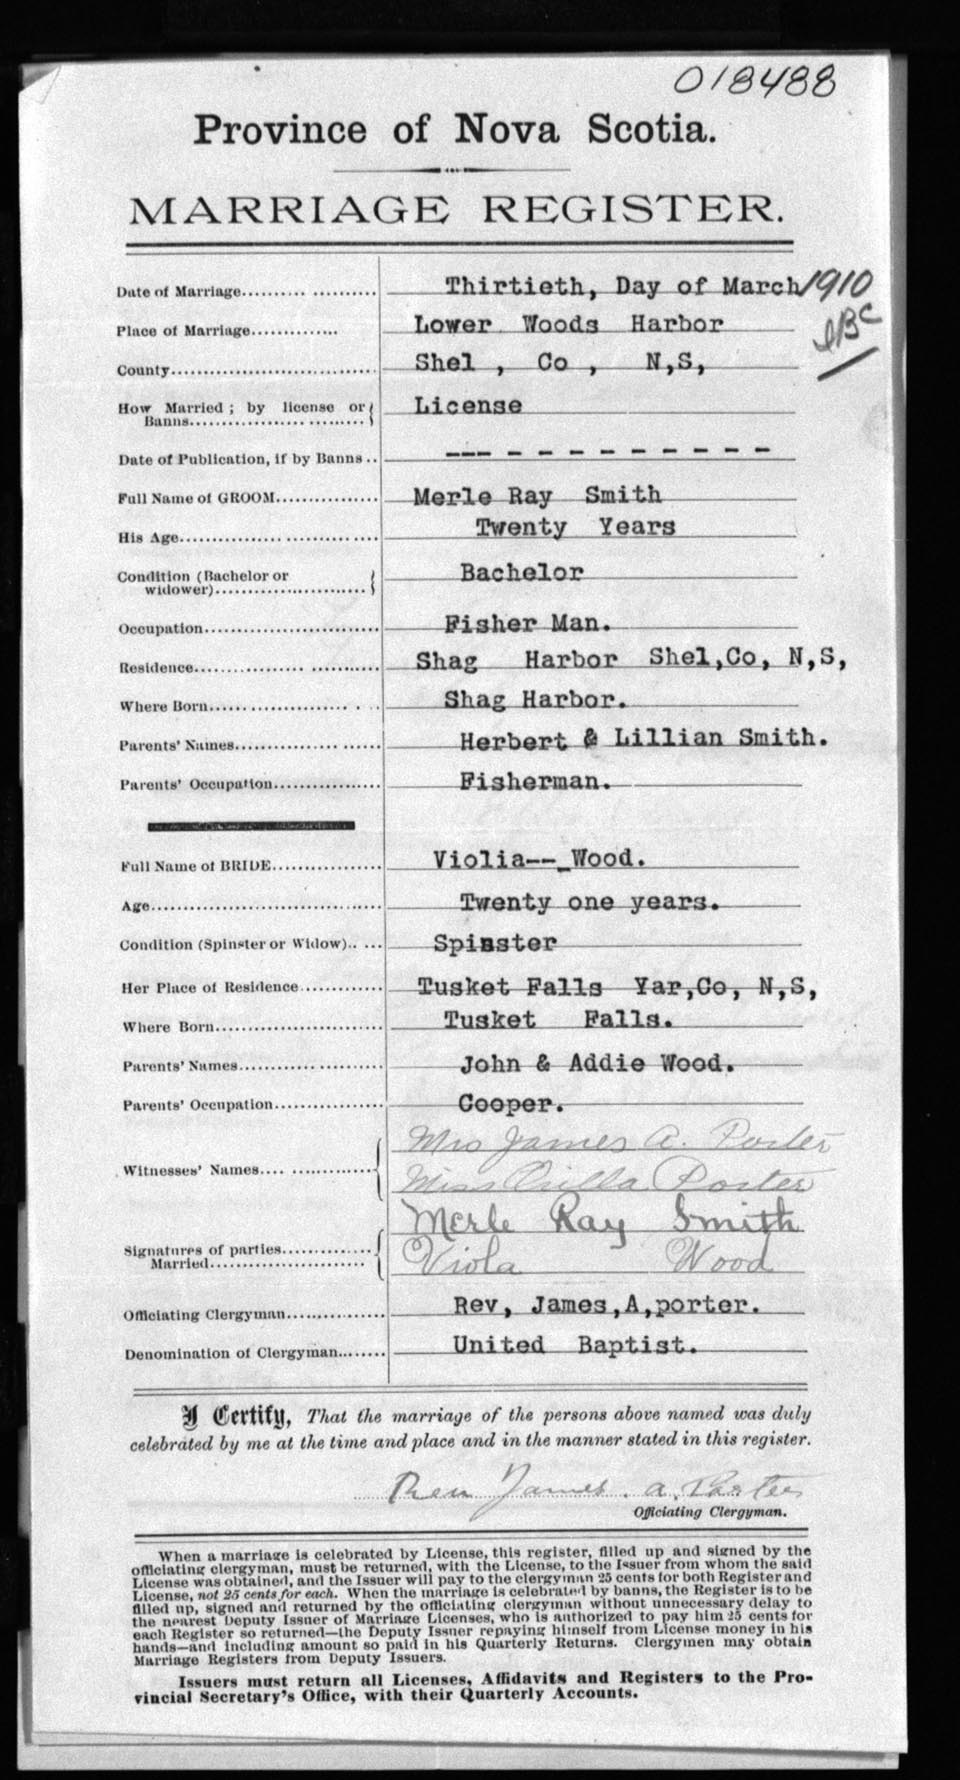 018488
Province of Nova Scotia.
MARRIAGE REGISTER.
Date of Marriage.......... ........... Thirtieth, Day of March 1910
Place of Marriage............. Lower Woods Harbor
County.............................. Shel , Co , N,S,
How Married ; by license or License
Banns.........................
Date of Publication, if by Banns .. --- - - - - - - - - - -
Full Name of GROOM................ Merle Ray Smith
His Age.............................. Twenty Years
Condition (Bachelor or Bachelor
widower)..........................
Occupation........................... Fisher Man.
Residence.................. ........... Shag Harbor Shel,Co, N,S,
Where Born...................... . . Shag Harbor.
Parents' Names................ ...... Herbert & Lillian Smith.
Parents' Occupation................. Fisherman.
Full Name of BRIDE................. Violia--_Wood.
Age................................... Twenty one years.
Condition (Spinster or Widow).. .... Spinster
Her Place of Residence............. Tusket Falls Yar,Co, N,S,
Where Born.......................... Tusket Falls.
Parents' Names........... ........... John & Addie Wood.
Parents' Occupation................. Cooper.
Mrs James A. Porter
Witnesses' Names.... ..............
Miss Orilla Porter
Merle Ray Smith
Signatures of parties..............
Married.........................
Viola Wood
Officiating Clergyman................ Rev, James,A,porter.
Denomination of Clergyman........ United Baptist.
I Certify, That the marriage of the persons above named was duly
celebrated by me at the time and place and in the manner stated in this register.
Rev James. A. Porter
Officiating Clergyman.
When a marriage is celebrated by License, this register, filled up and signed by the
officiating clergyman, must be returned, with the License, to the Issuer from whom the said
License was obtained, and the Issuer will pay to the clergyman 25 cents for both Register and
License, not 25 cents for each. When the marriage is celebrated by banns, the Register is to be
filled up, signed and returned by the officiating clergyman without unnecessary delay to
the nearest Deputy Issuer of Marriage Licenses, who is authorized to pay him 25 cents for
each Register so returned—the Deputy Issuer repaying himself from License money in his
hands—and including amount so paid in his Quarterly Returns. Clergymen may obtain
Marriage Registers from Deputy Issuers.
Issuers must return all Licenses, Affidavits and Registers to the Pro-
vincial Secretary's Office, with their Quarterly Accounts.